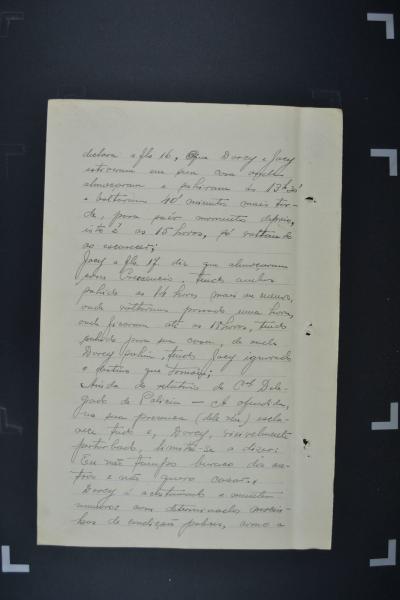 declara a fls 16, que Darcy e Jacy
estiveram em sua casa onde
almoçaram e sahiram ás 13h 30'
e voltaram 40' minutos mais tar-
de, para sair momentos depois,
isto é as 15 horas, só voltando
ao escurecer;
Jacy a fls 17. diz que almoçaram
com Crescencio, tendo ambos
sahido as 14 horas mais ou menos,
onde voltaram passada uma hora,
onde ficaram até as 18 horas, tendo
sahido para sua casa, de onde
Darcy sahiu, tendo Jacy ignorado
o destino que tomou;
Ainda do relatorio do Dele-
gado de Policia — A ofendida,
na sua presença (dele réu) escla-
rece tudo e, Darcy, visivelmente
perturbado, limita-se a dizer:
Eu não tampo buraco dos ou-
tros e não quero casar.
Darcy é acostumado a manter
namoros com determinadas moci-
nhas de condição pobres, como a